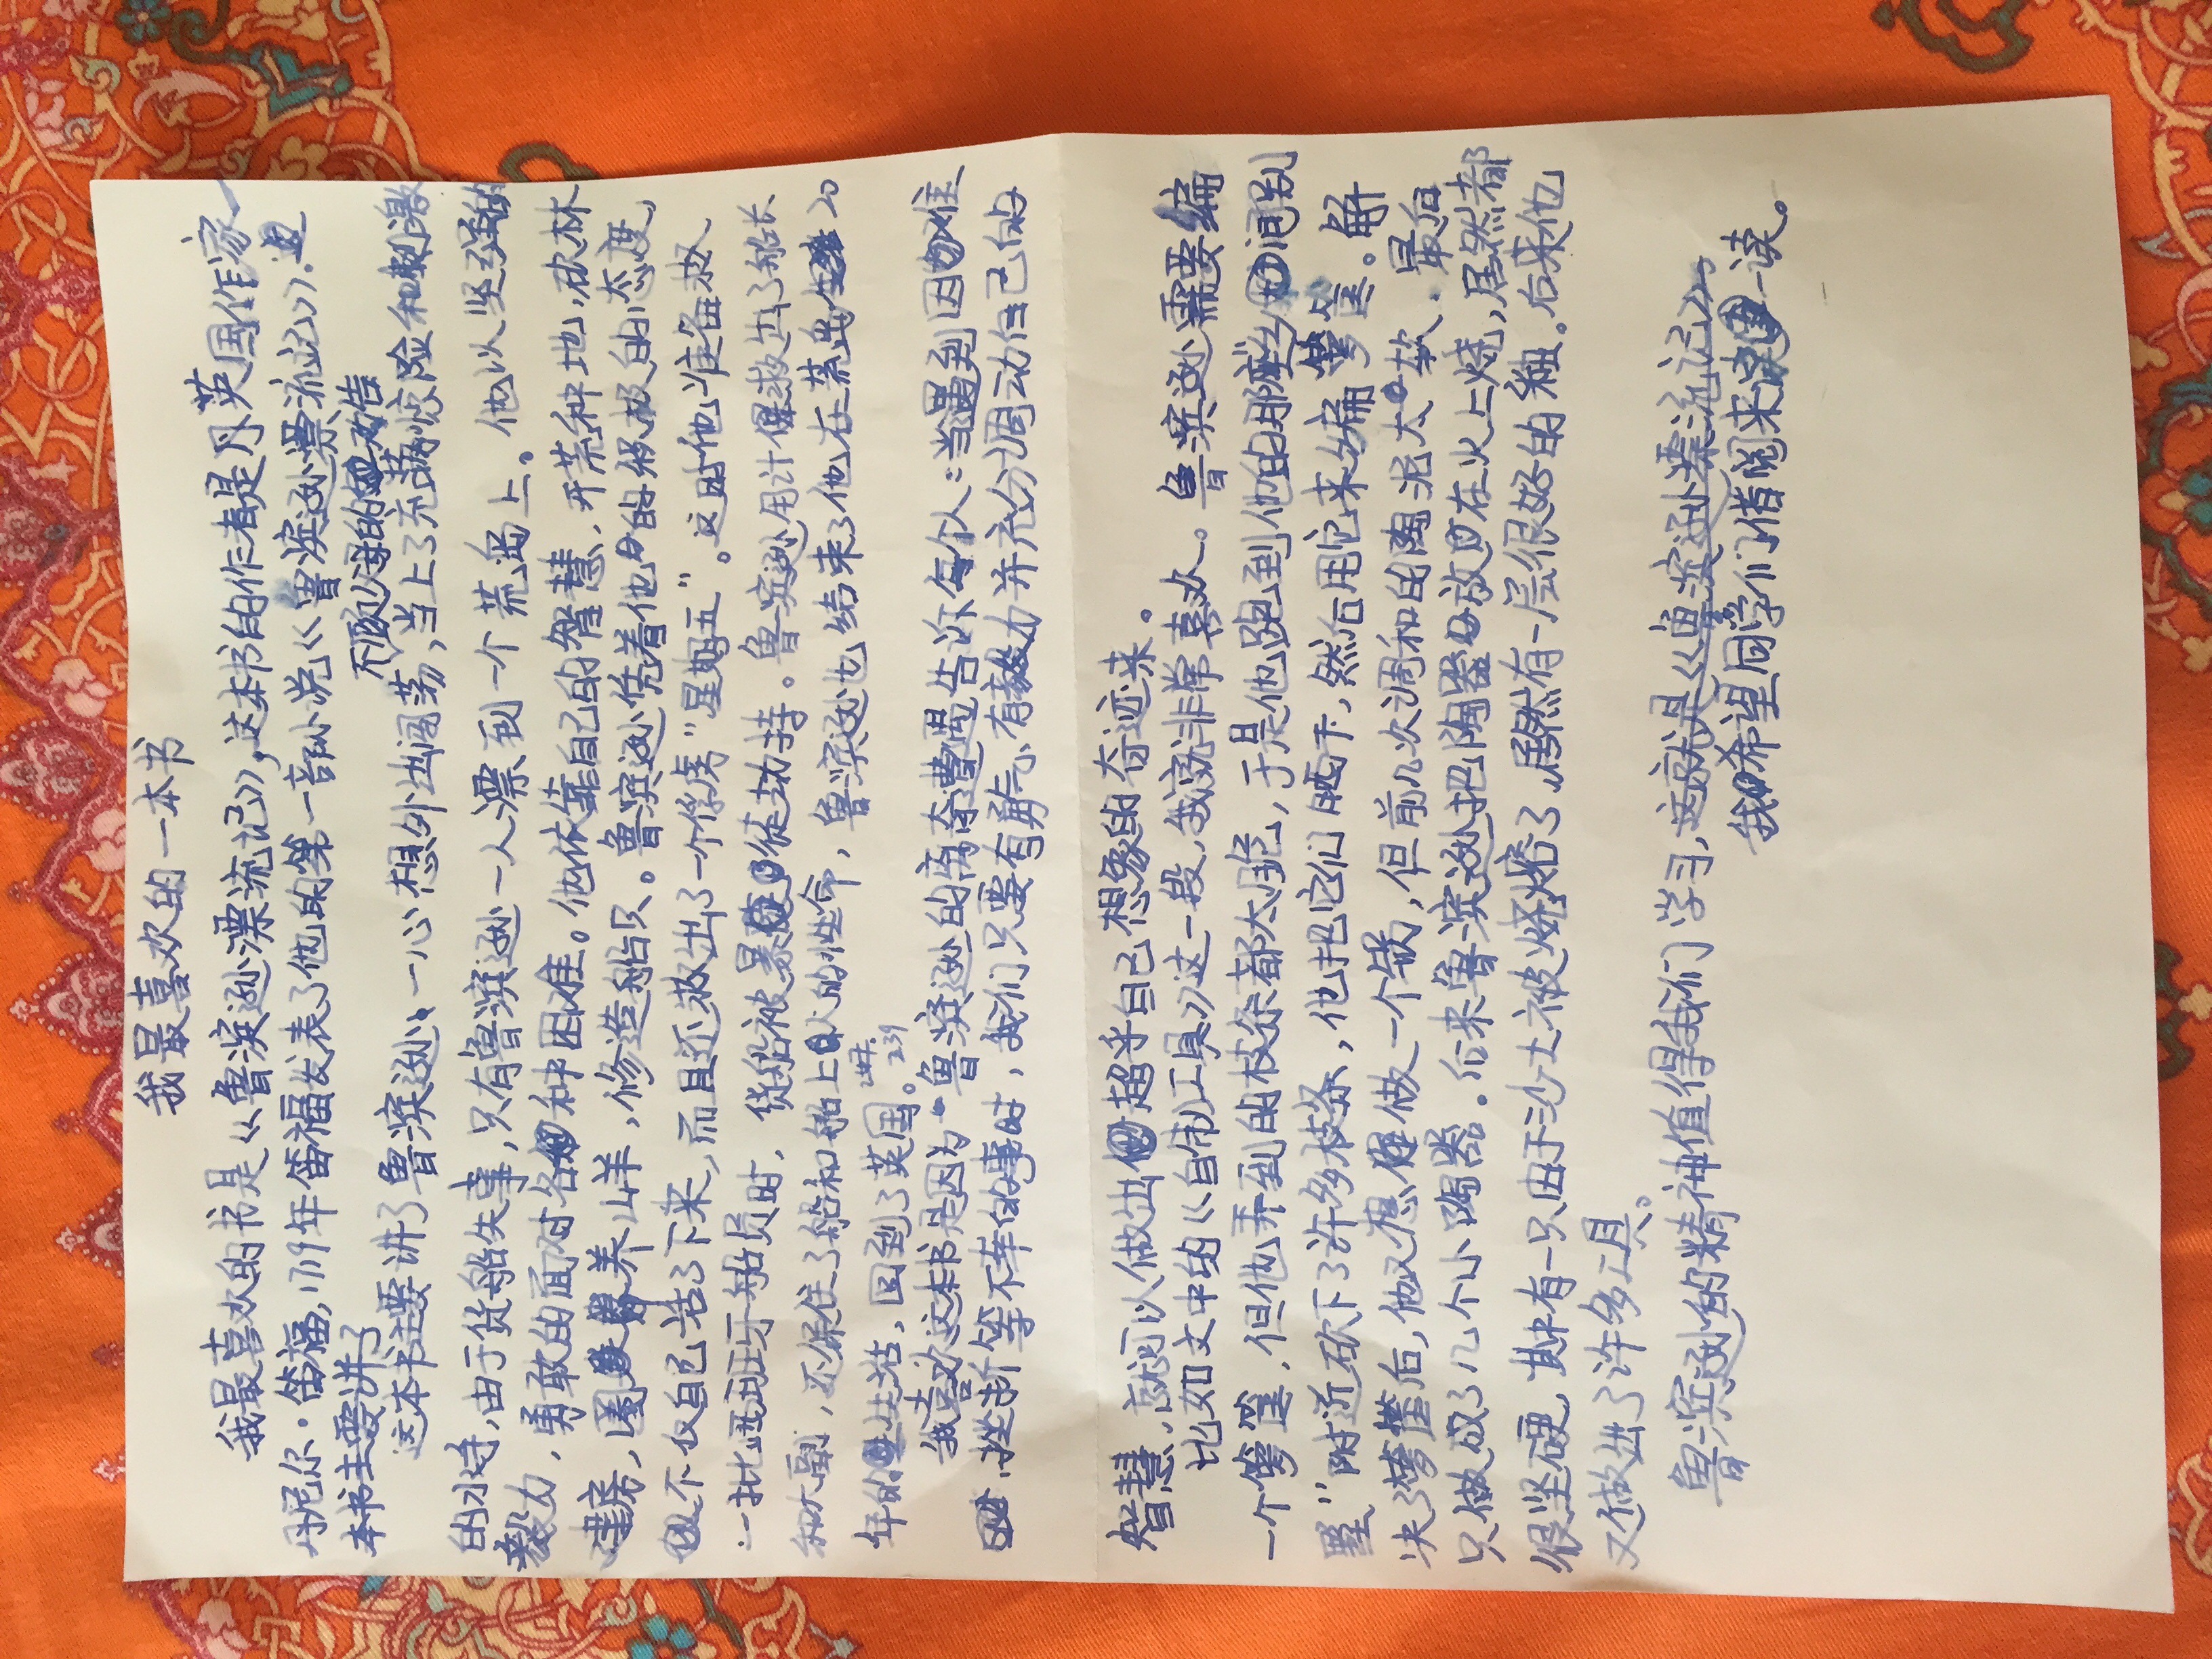 我最喜欢的一本书
我最喜欢的书是《鲁滨逊漂流记》，这本书的作者是丹英国作家
丹尼尔·笛福，1719年笛福发表了他的第一部小说《鲁滨逊漂流记》.这
本书主要讲了
不顾父母的劝告
这本书主要讲了鲁滨逊。一心想外出闯荡，当上了充满惊险和刺激
的水手，由于货船失事，只有鲁滨逊一人漂到一个荒岛上。他以坚强的
毅力，勇敢的面对各种困难。他依靠自己的智慧，开荒种地，砍林
建房，圈养山羊，修造船只。鲁滨逊凭着他的积极的态度，
不仅自己活了下来，而且还救出了一个俘虏"星期五"。这时他准备救
一批西班牙船员时，货船被暴徒劫持。鲁滨逊用计谋救出了船长
和大副，还保住了船和船上人的性命，鲁滨逊也结束了他在荒岛20
年的生活，回到了英国。
共239
我喜欢这本书是因为鲁滨逊的离奇遭遇告诉每个人：当遇到困难
、挫折等不幸的事时，我们只要有勇气、有毅力并充分调动自己的
智慧，就可以做出超乎自己想象的奇迹来。
比如文中的《自制工具》这一段，我就非常喜欢。鲁滨逊需要编
一个箩筐，但他弄到的枝条都太脆，于是他跑到他的那座"间别
墅"附近砍下了许多枝条，他把它们晒干，然后用它来编箩筐。解
决了箩筐后，他又想做一个锅，但前几次调和的陶泥太软.最后
只做成了几个小陶器.后来鲁滨逊把陶器放在火上烧，居然都
很坚硬，其中有一只由于沙土被火烧熔了，居然有一层很好的釉。后来他
又做出了许多工具。
鲁滨逊的精神值得我们学习，这就是《鲁滨逊漂流记》
我希望同学们借阅来读一读。